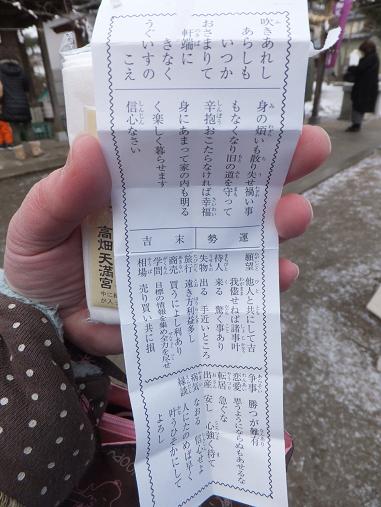 吹きあれし
あらしも
いつか
おさまりて
軒端に
きなく
うぐいすの
こえ
身の煩いも散り失せ禍い事
もなくなり旧の道を守って
辛抱おこたらなければ幸福
身にあまって家の内も明る
く楽しく暮らせます
信心なさい
運勢
末吉
願望 他人と共にして吉
我儘せねば諸事叶
待人 来る 驚く事あり
失物 出る 手近いところ
旅行 遠き方利益多し
商売 買うによし利あり
学問 目標の情報を集め全力を尽せ
相場 売り買い共に損
争事 勝つが難有
恋愛 思うようにならぬもあせるな
転居 急ぐな
出産 安し 心強く待て
病気 なおる 信心せよ
縁談 人にたのめば早く
叶うひそかにして
よろし
高畑天満宮